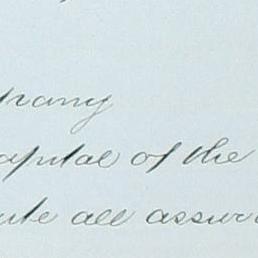 pany
capital of the
ute all assur